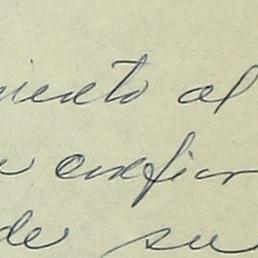 miento al
confian
de su